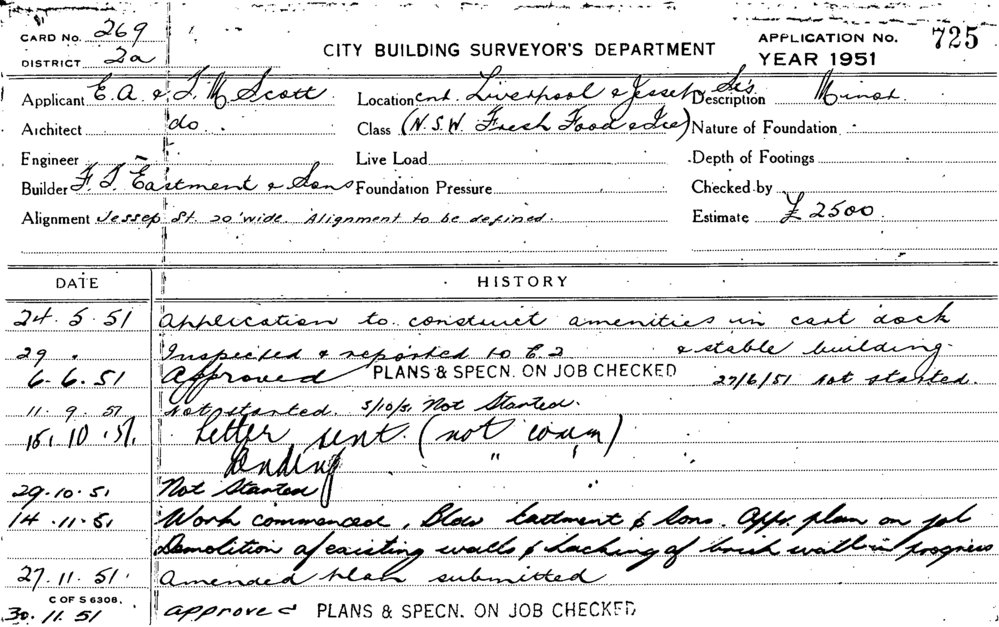 CARD No. 269
DISTRICT 2a
CITY BUILDING SURVEYOR'S DEPARTMENT
APPLICATION No. 725
YEAR 1951
Applicant E. A. & T. M Scott Location cnr. Liverpool & Jessep Sts Description Minor.
Architect do. Class (N.S.W. Fresh Food & Ice) Nature of Foundation
Engineer Live Load Depth of Footings
Builder F. T. Eastment & Sons Foundation Pressure Checked by
Alignment Jessep St. 20' wide. Alignment to be defined. Estimate £ 2500
DATE HISTORY
24. 5. 51 Application to construct amenities in cart dock
29 . Inspected & reported to C. 2 & stable building.
6. 6. 51 Approved PLANS & SPECN. ON JOB CHECKED 27/6/51 Not started.
11. 9. 51 Not started. 5/10/51 Not Started.
15. 10. 51. Letter sent. (not comm)
Pending " "
29. 10. 51 Not Started
14. 11. 51 Work commenced, Bldr Eastment & Sons. Appr. plan on job
Demolition of existing walls & hacking of brick wall in progress
27. 11. 51. Amended plan submitted
C OF S 6308.
30. 11. 51 approved PLANS & SPECN. ON JOB CHECKED